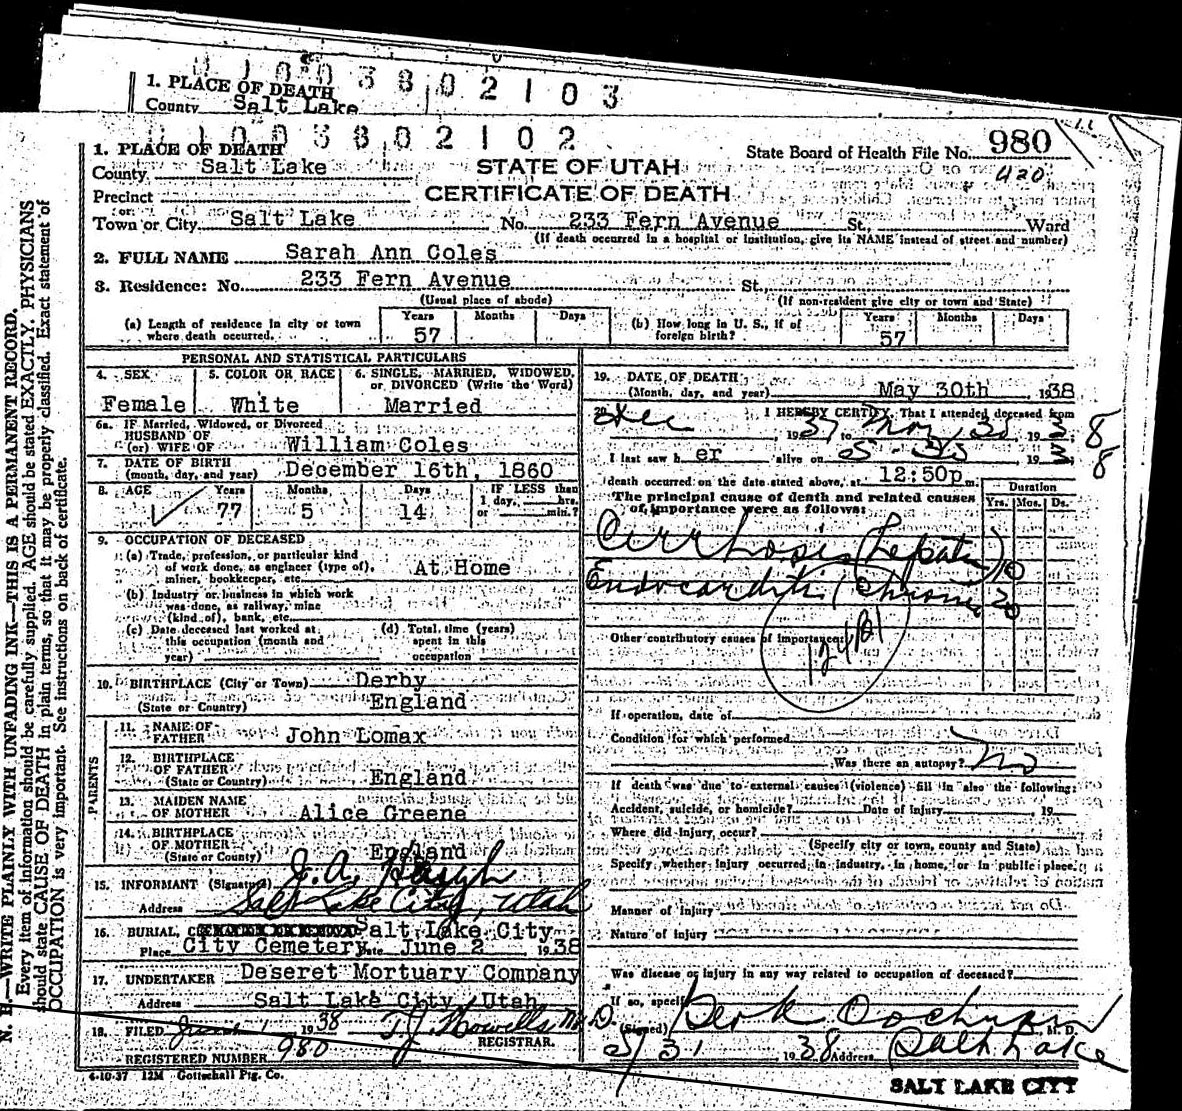 0 1 0 0 3 8 0 2 1 0 3
1. PLACE OF DEATH
County Salt Lake
0 1 0 0 3 8 0 2 1 0 2
1. PLACE OF DEATH
County Salt Lake
STATE OF UTAH
CERTIFICATE OF DEATH
State Board of Health File No. 980
420
Precinct
or
Town or City Salt Lake No. 233 Fern Avenue St., Ward
(If death occurred in a hospital or institution, give its NAME instead of street and number)
2. FULL NAME Sarah Ann Coles
3. Residence: No. 233 Fern Avenue St.,
(Usual place of abode) (If non-resident give city or town and State)
(a) Length of residence in city or town where death occurred. Years 57 Months Days
(b) How long in U. S., if of foreign birth? Years 57 Months Days
PERSONAL AND STATISTICAL PARTICULARS
4. SEX Female
5. COLOR OR RACE White
6. SINGLE, MARRIED, WIDOWED, or DIVORCED (Write the Word) Married
6a. IF Married, Widowed, or Divorced
HUSBAND OF
(or) WIFE OF William Coles
7. DATE OF BIRTH
(month, day, and year) December 16th, 1860
8. AGE Years 77 Months 5 Days 14 IF LESS than 1 day, hrs. or min.?
9. OCCUPATION OF DECEASED
(a) Trade, profession, or particular kind
of work done, as engineer (type of),
miner, bookkeeper, etc. At Home
(b) Industry or business in which work
was done, as railway, mine
(kind of), bank, etc.
(c) Date deceased last worked at
this occupation (month and
year)
(d) Total time (years)
spent in this
occupation
10. BIRTHPLACE (City or Town) Derby
(State or Country) England
PARENTS
11. NAME OF
FATHER John Lomax
12. BIRTHPLACE
OF FATHER
(State or Country) England
13. MAIDEN NAME
OF MOTHER Alice Greene
14. BIRTHPLACE
OF MOTHER
(State or County) England
15. INFORMANT (Signature) J. A.
Address Salt Lake City, Utah
16. BURIAL, Salt Lake City
Place City Cemetery Date June 2 1938
17. UNDERTAKER Deseret Mortuary Company
Address Salt Lake City, Utah
18. FILED June 1 1938 T. J. Howells, M. D.
REGISTRAR.
REGISTERED NUMBER 980
4-10-37 12M Gottschall Ptg. Co.
19. DATE OF DEATH
(Month, day, and year) May 30th 1938
20. I HEREBY CERTIFY, That I attended deceased from
Dec 1937 to May 30 1938
I last saw her alive on 5-30 1938
death occurred on the date stated above, at 12:50p m.
The principal cause of death and related causes
of importance were as follows:
Duration
Yrs. Mos. Ds.
Cirrhosis (Hepatic) 10
Endocarditis (Chronic) 20
Other contributory causes of importance:
124B
If operation, date of
Condition for which performed
Was there an autopsy? No
If death was due to external causes (violence) fill in also the following:
Accident, suicide, or homicide? Date of injury 19
Where did injury occur?
(Specify city or town, county and State)
Specify whether injury occurred in industry, in home, or in public place.
Manner of injury
Nature of injury
Was disease or injury in any way related to occupation of deceased?
If so, specify
(Signed) M. D.
5/31 1938 Address Salt Lake
SALT LAKE CITY
N. B.—WRITE PLAINLY WITH UNFADING INK—THIS IS A PERMANENT RECORD.
Every item of information should be carefully supplied. AGE should be stated EXACTLY. PHYSICIANS
should state CAUSE OF DEATH in plain terms, so that it may be properly classified. Exact statement of
OCCUPATION is very important. See instructions on back of certificate.